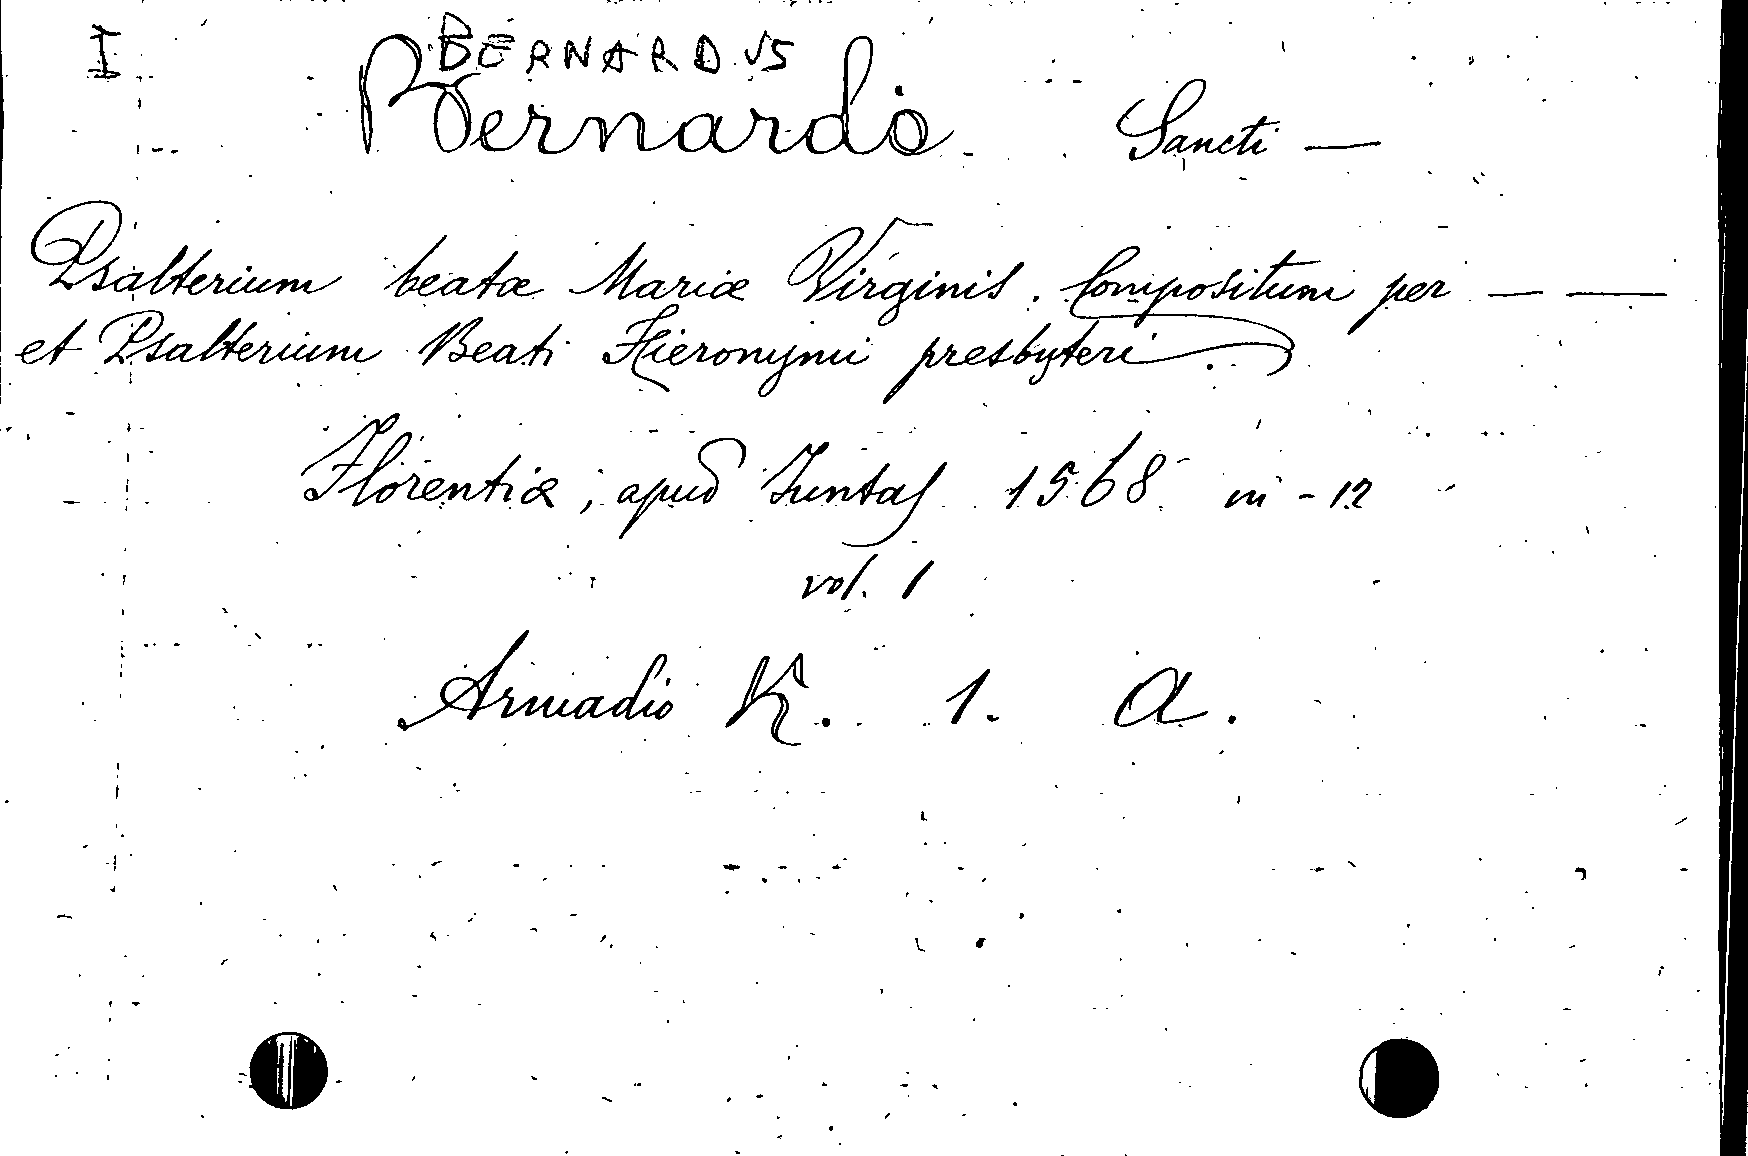 I BERNARDVS
Bernardo Sancti —
Psalterium beatæ Mariæ Virginis. Compositum per — —
et Psalterium Beati Hieronymi presbyteri.
Florentiæ, apud Juntas 1568 in - 12
vol. 1
Armadio K. 1. A.